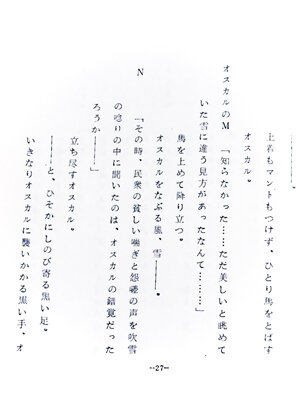 オスカル。
上着もマントもつけず、ひとり馬をとばす
オスカル。
オスカルのM 「知らなかった……ただ美しいと眺めて
いた雪に違う見方があったなんて………」
馬を止めて降り立つ。
オスカルをなぶる風、雪――。
N 「その時、民衆の貧しい喘ぎと怨嗟の声を吹雪
の唸りの中に聞いたのは、オスカルの錯覚だった
ろうか――――」
立ち尽すオスカル。
――と、ひそかにしのび寄る黒い足。
いきなりオスカルに襲いかかる黒い手。オ
--27--